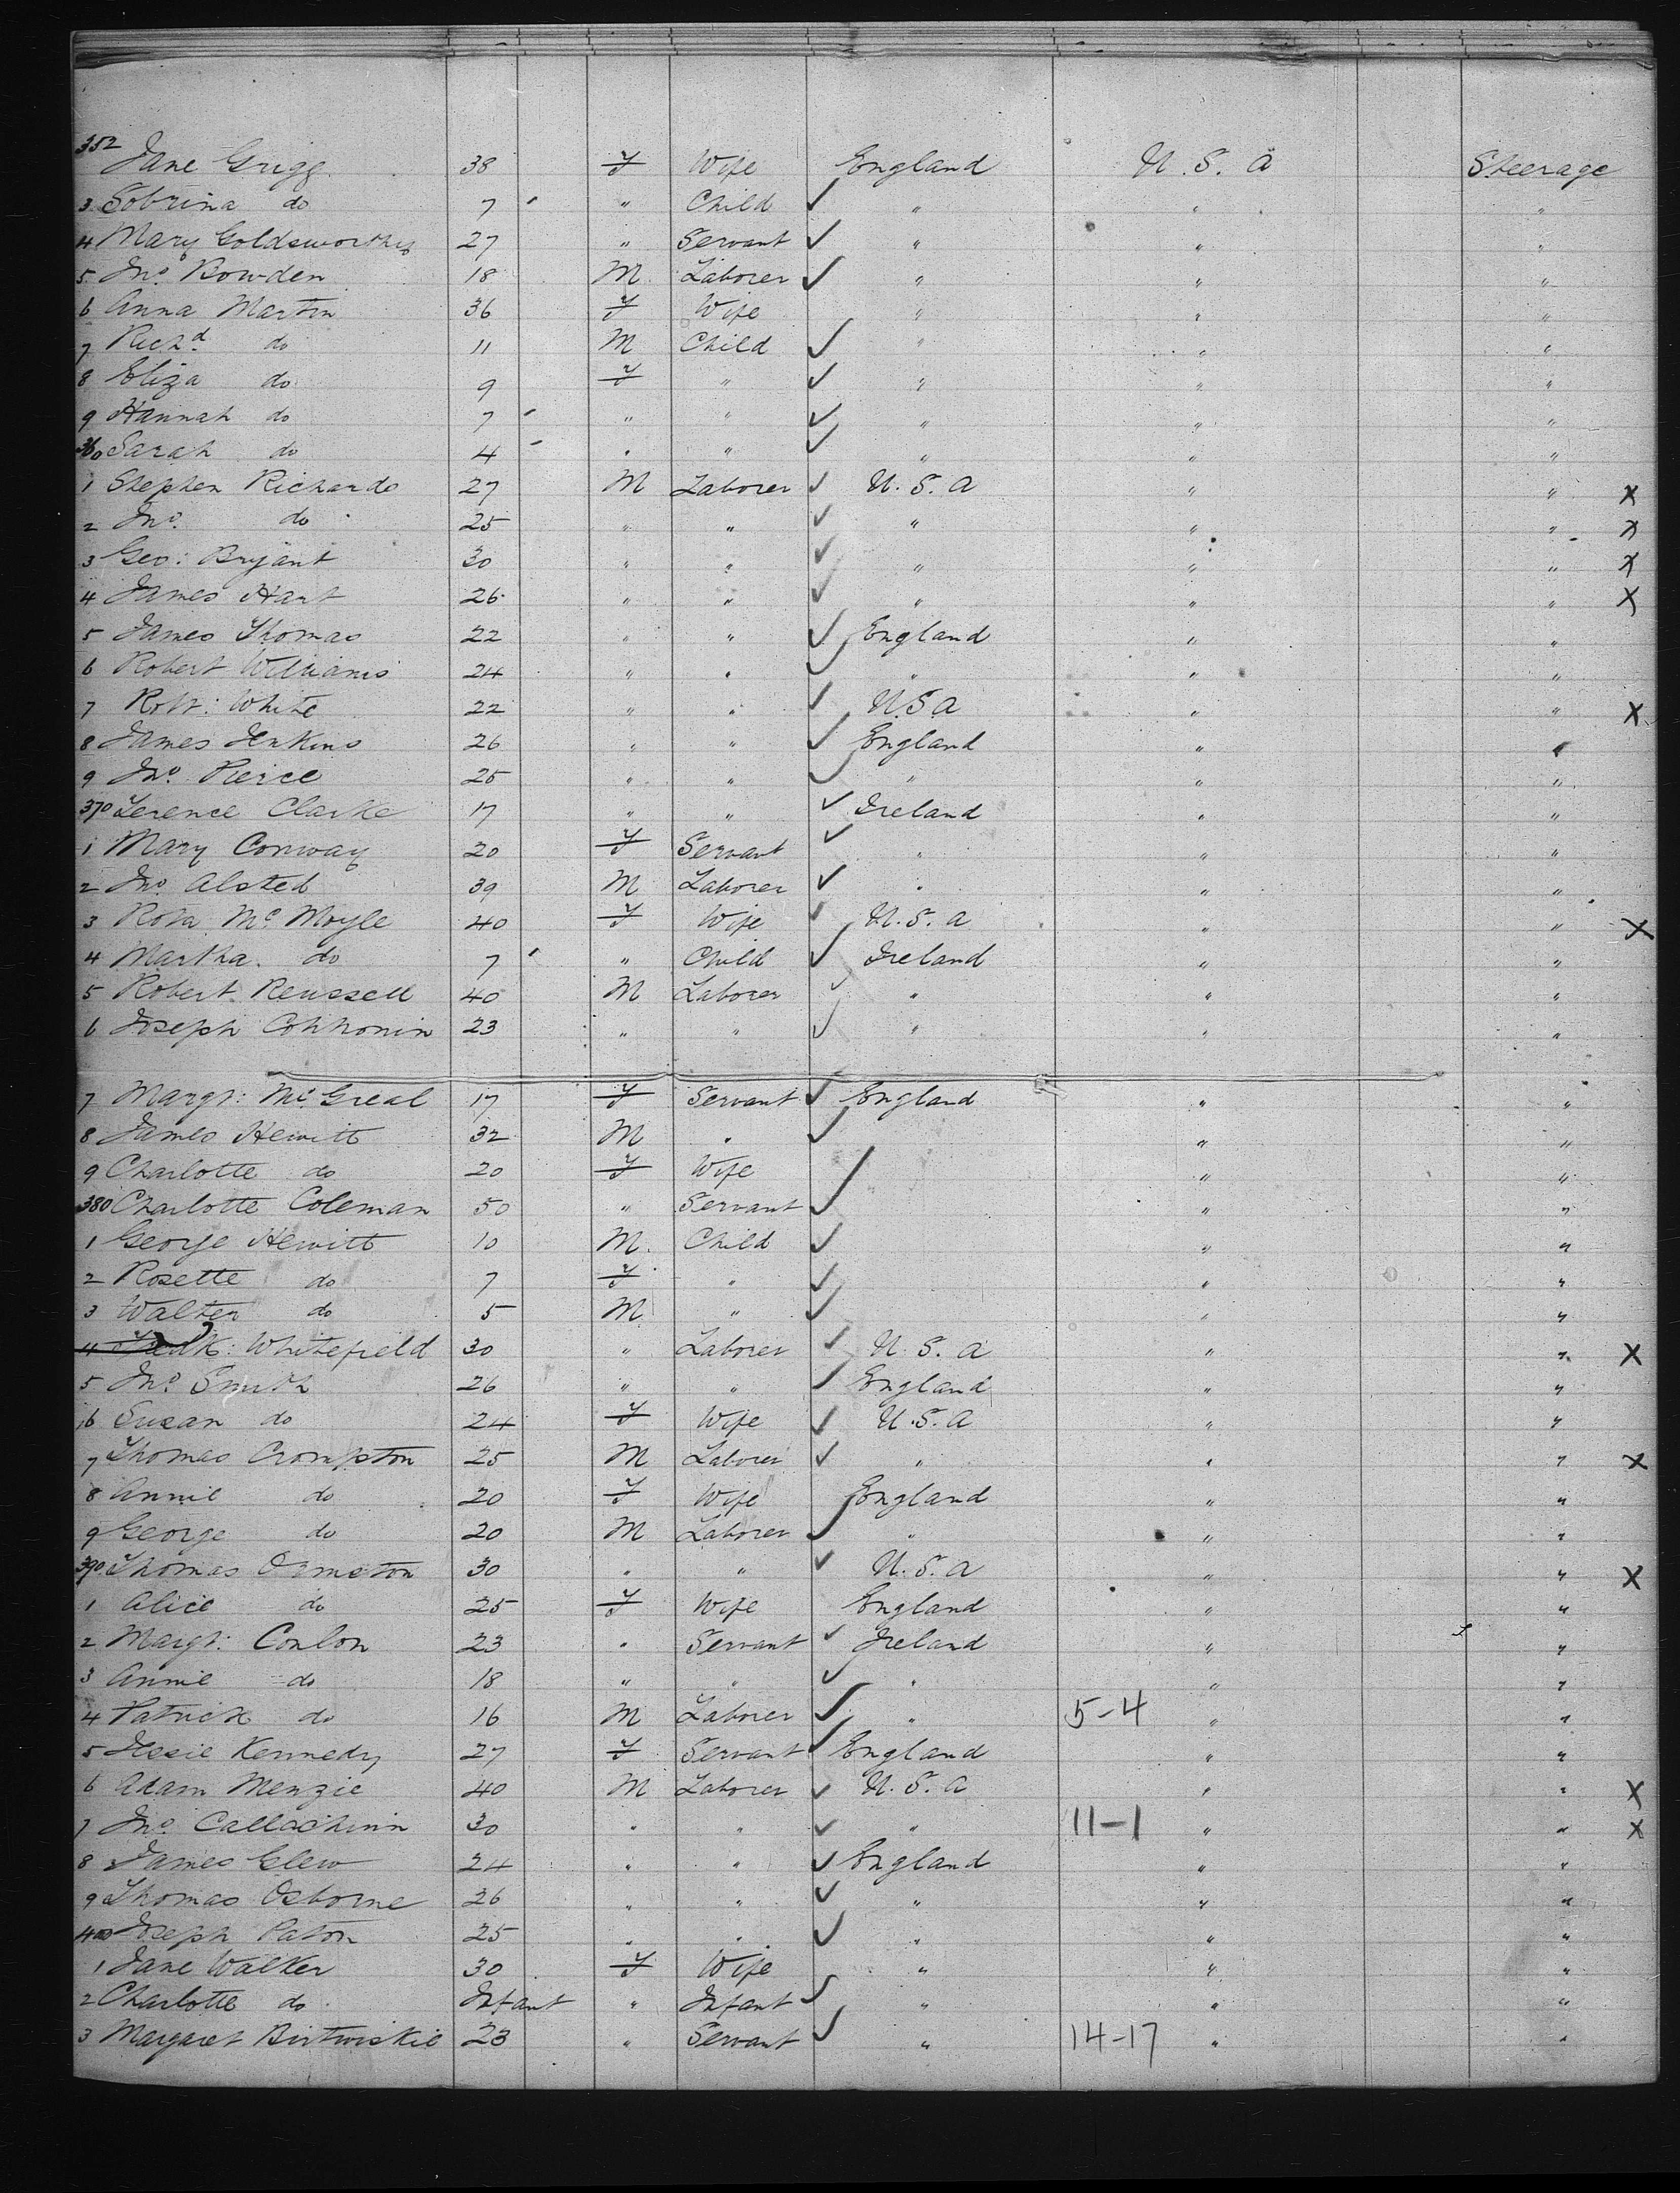 352 Jane Grigg 38 F Wife England U.S.A Steerage
3 Sobrina do 7 " Child " " "
4 Mary Goldsworthy 27 " Servant " " "
5 Jno. Bowden 18 M Laborer " " "
6 Anna Martin 36 F Wife " " "
7 Richd. do 11 M Child " " "
8 Eliza do 9 F " " " "
9 Hannah do 7 " " " " "
360 Sarah do 4 " " " " "
1 Stephen Richards 27 M Laborer U.S.A " " X
2 Jno. do 25 " " " " " X
3 Geo: Bryant 30 " " " " " X
4 James Hart 26 " " " " " X
5 James Thomas 22 " " England " "
6 Robert Williams 24 " " " " "
7 Robt: White 22 " " U.S.A " " X
8 James Jenkins 26 " " England " "
9 Jno. Pierce 25 " " " " "
370 Terence Clarke 17 " " Ireland " "
1 Mary Conway 20 F Servant " " "
2 Jno. Alsted 39 M Laborer " " "
3 Rosa Mc Moyle 40 F Wife U.S.A " " X
4 Martha do 7 " Child Ireland " "
5 Robert Reussell 40 M Laborer " " "
6 Joseph 23 " " " " "
7 Margt: McGreal 17 F Servant England " "
8 James Hewitt 32 M " " "
9 Charlotte do 20 F Wife " "
380 Charlotte Coleman 50 " Servant " "
1 George Hewitt 10 M. Child " "
2 Rosette do 7 F " " "
3 Walter do 5 M " " "
4 Fredk: Whitefield 30 " Laborer U.S.A " " X
5 Jno. Smith 26 " " England " "
6 Susan do 24 F Wife U.S.A " "
7 Thomas Crompton 25 M Laborer " " " X
8 Annie do 20 F Wife England " "
9 George do 20 M Laborer " " "
390 Thomas Ormston 30 " " U.S.A " " X
1 Alice do 25 F Wife England " "
2 Margt: Conlon 23 " Servant Ireland " "
3 Annie do 18 " " " " "
4 Patrick do 16 M Laborer " 5-4 " "
5 Jessie Kennedy 27 F Servant England " "
6 Adam Menzie 40 M Laborer U.S.A " " X
7 Jno. Callachinn 30 " " " 11-1 " " X
8 James Glew 24 " " England " "
9 Thomas Osborne 26 " " " " "
400 Joseph Paton 25 " " " " "
1 Jane Walker 30 F Wife " " "
2 Charlotte do Infant " Infant " " "
3 Margaret Birtwiskie 23 " Servant " 14-17 " "